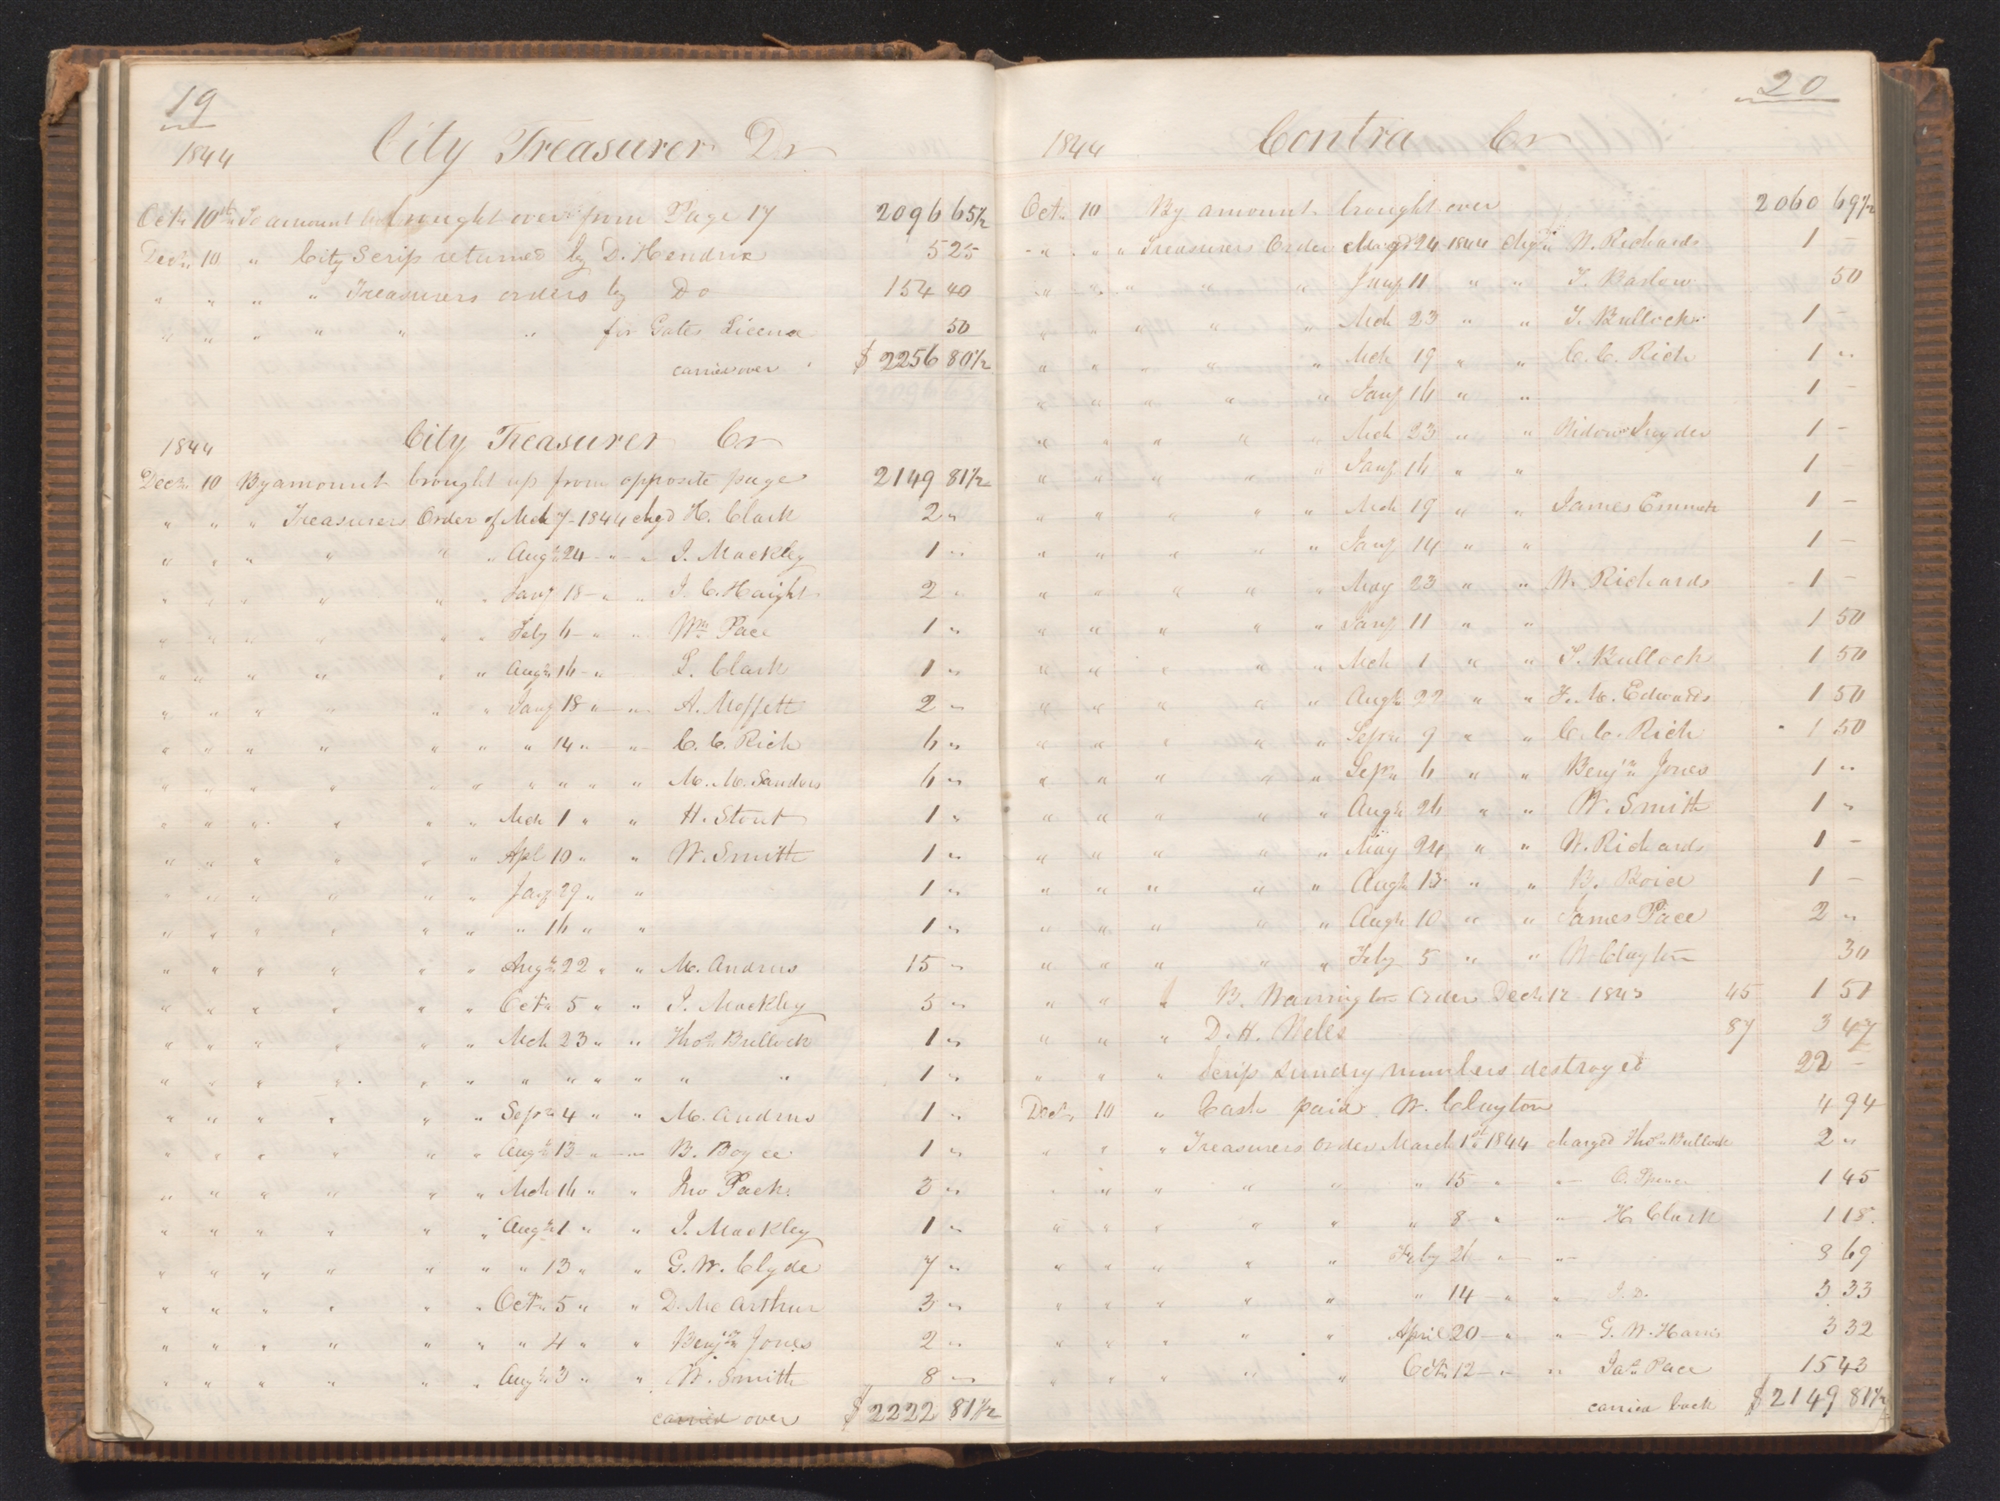 19
1844 City Treasurer Dr
Octr 10th To amount brought over from Page 17 2096 65½
Decr 10 " City Scrip returned by D. Hendrix 5 25
" " " " Treasurers orders by Do 154 40
" " " " " for Gate License 50
carried over $ 2256 80½
1844 City Treasurer Cr
Decr 10 By amount brought up from opposite page 2149 81½
" " " Treasurers Order of Mch 7 - 1844 chgd H. Clark 2 "
" " " " " " Augt 24 - " " J. Mackley 1 "
" " " " " " Jany 18 - " " I. C. Haight 2 "
" " " " " " Feby 6 - " " Wm Pace 1 "
" " " " " " Augt 16 - " L. Clark 1 "
" " " " " " Jany 18 " " A. Moffett 2 "
" " " " " " " 14 " " C. C. Rich 6 "
" " " " " " " " " " M. M. Sanders 6 "
" " " " " " Mch 1 " " H. Stout 1 "
" " " " " " Apl 10 " " W. Smith 1 "
" " " " " " Jany 29 " " 1 "
" " " " " " " 16 " " 1 "
" " " " " " Augt 22 " " M. Andrus 15 "
" " " " " " Octr 5 " " J. Mackley 5 "
" " " " " " Mch 23 " " Thos Bullock 1 "
" " " " " " " " " " " " 1 "
" " " " " " Sepr 4 " " M. Andrus 1 "
" " " " " " Augt 13 " " B. Boyce 1 "
" " " " " " Mch 16 " " Jno Pack 3 "
" " " " " " Augt 1 " " J. Mackley 1 "
" " " " " " " 13 " " G. W. Clyde 7 "
" " " " " " Octr 5 " " D. Mc Arthur 3 "
" " " " " " " 4 " " Benjn Jones 2 "
" " " " " " Augt 3 " " W. Smith 8 "
carried over $ 2222 81½
20
1844 Contra Cr
Octr 10 By amount brought over 2060 69½
" " " Treasurers Order May 24 1844 chgd W. Richards 1 -
" " " " " Jany 11 " " T. Barlow 50
" " " " " Mch 23 " " T. Bullock 1 -
" " " " " Mch 19 " " C. C. Rich 1 "
" " " " " Jany 16 " " 1 -
" " " " " Mch 23 " " Widow Snyder 1 -
" " " " " Jany 16 " " 1
" " " " " Mch 19 " " James Emmett 1 -
" " " " " Jany 14 " " 1 -
" " " " " May 23 " " W. Richards 1 -
" " " " " Jany 11 " " 1 50
" " " " " Mch 1 " " T. Bullock 1 50
" " " " " Augt 22 " " F. M. Edwards 1 50
" " " " " Sepr 9 " " C. C. Rich 1 50
" " " " " Sepr 6 " " Benjn Jones 1 "
" " " " " Augt 26 " " W. Smith 1 "
" " " " " May 24 " " W. Richards 1 -
" " " " " Augt 13 " " B. Boice 1 -
" " " " " Augt 10 " " James Pace 2 "
" " " " " Feby 5 " " W Clayton 30
" " " B. Warrington Order Dech 12 1843 45 1 51
" " " D. H. Wells 87 3 47
" " " Scrip Sundry numbers destroyed 22 -
Decr 10 " Cash paid W. Clayton 4 94
" " " Treasurers Order March 1st 1844 charged Thos Bullock 2 "
" " " " " " 15 " " O. Spencer 1 45
" " " " " " 8 " " H. Clark 1 18
" " " " " Feby 26 " " 8 69
" " " " " " 14 " " J. D. 3 33
" " " " " April 20 " " G. W. Harris 3 32
" " " " " Octr 12 " " Jas Pace 15 43
carried back $ 2149 81½